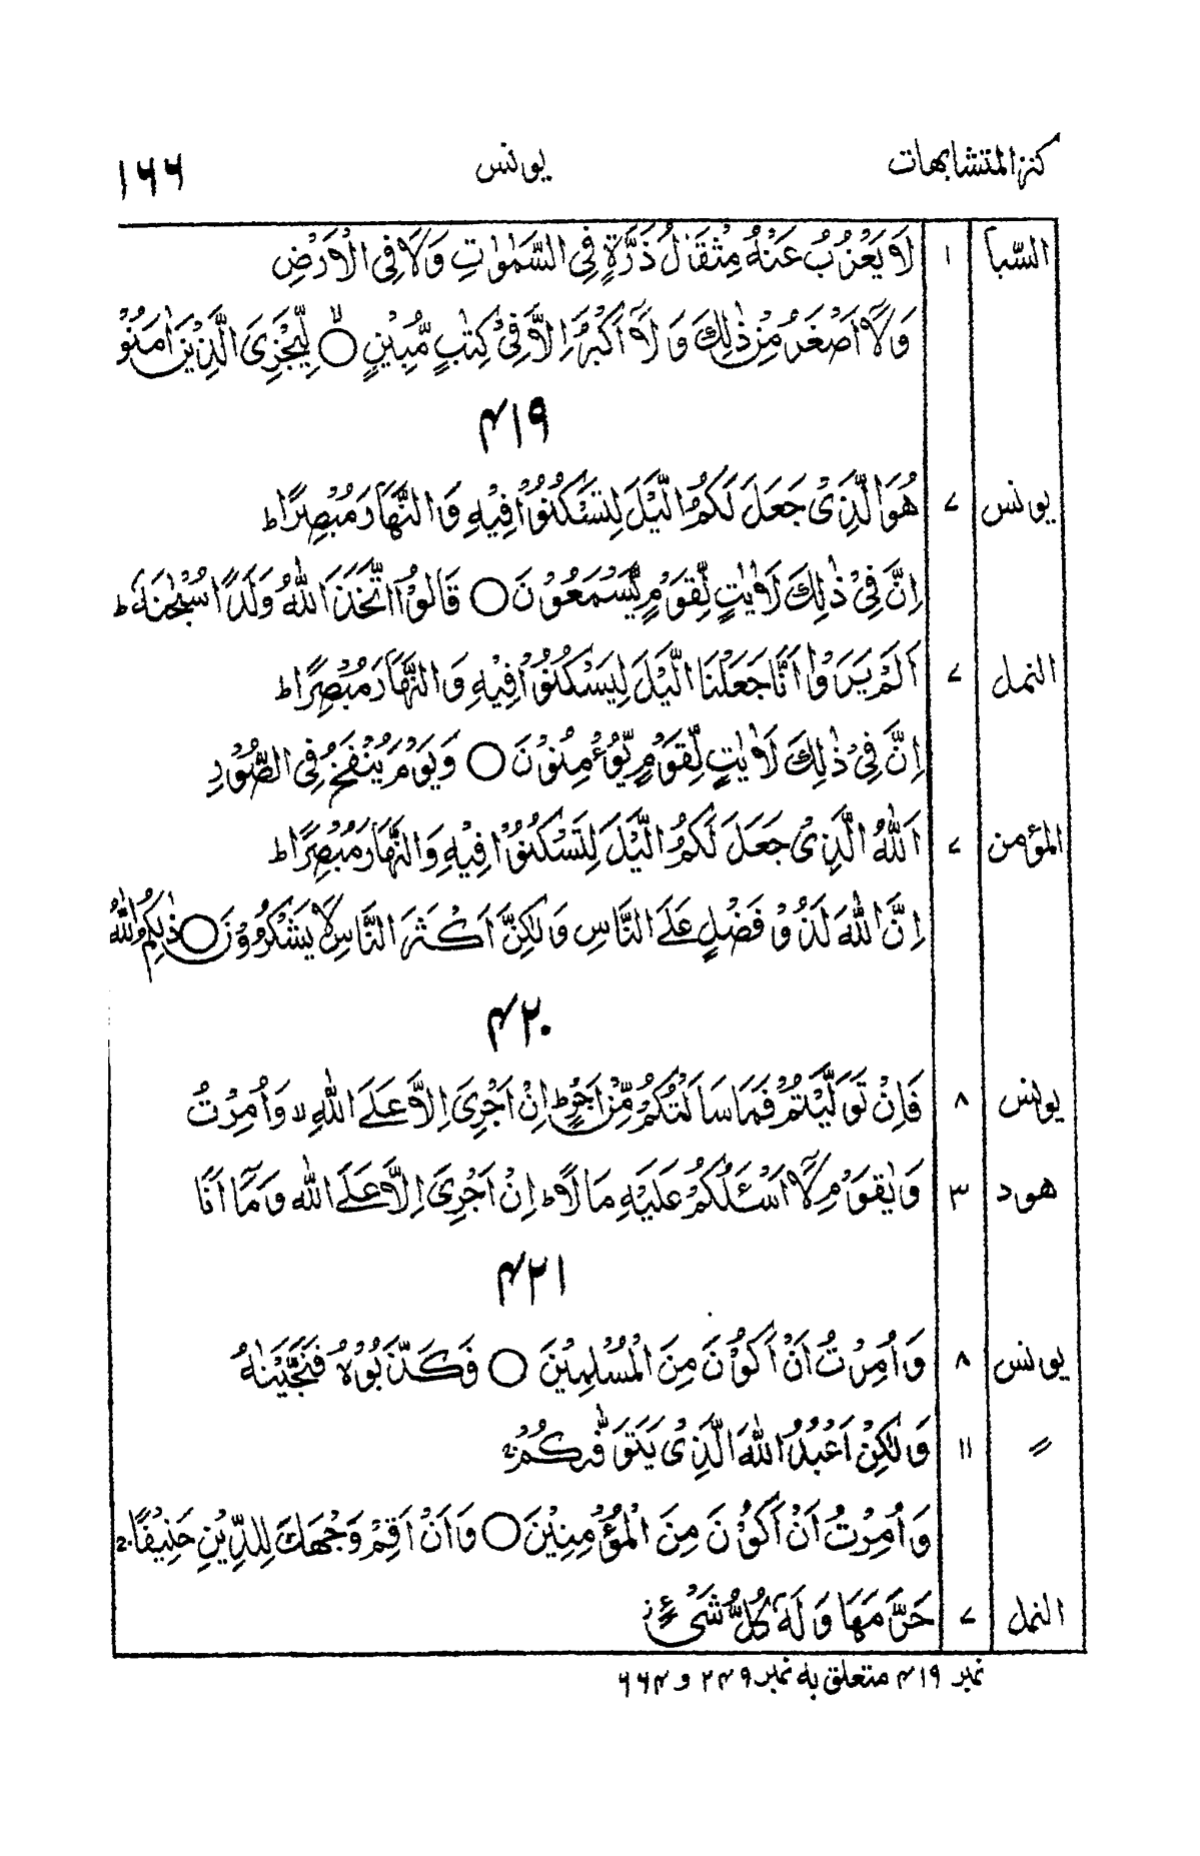 كنز المتشابهات يونس ۱۶۶
السّبا ۱ لَا يَعْزُبُ عَنْهُ مِثْقَالُ ذَرَّةٍ فِي السَّمٰوٰتِ وَلَا فِي الْاَرْضِ
وَلَآ اَصْغَرُ مِنْ ذٰلِكَ وَ لَآ اَكْبَرُ اِلَّا فِيْ كِتٰبٍ مُّبِيْنٍ ○ لِّيَجْزِيَ الَّذِيْنَ اٰمَنُوْ
۴۱۹
يونس ۷ هُوَ الَّذِيْ جَعَلَ لَكُمُ الَّيْلَ لِتَسْكُنُوْا فِيْهِ وَ النَّهَارَ مُبْصِرًا ط
اِنَّ فِيْ ذٰلِكَ لَاٰيٰتٍ لِّقَوْمٍ يَّسْمَعُوْنَ ○ قَالُوا اتَّخَذَ اللّٰهُ وَلَدًا سُبْحٰنَهٗ ط
النمل ۷ اَلَمْ يَرَوْا اَنَّا جَعَلْنَا الَّيْلَ لِيَسْكُنُوْا فِيْهِ وَ النَّهَارَ مُبْصِرًا ط
اِنَّ فِيْ ذٰلِكَ لَاٰيٰتٍ لِّقَوْمٍ يُّؤْمِنُوْنَ ○ وَيَوْمَ يُنْفَخُ فِي الصُّوْرِ
المؤمن ۷ اَللّٰهُ الَّذِيْ جَعَلَ لَكُمُ الَّيْلَ لِتَسْكُنُوْا فِيْهِ وَالنَّهَارَ مُبْصِرًا ط
اِنَّ اللّٰهَ لَذُوْ فَضْلٍ عَلَى النَّاسِ وَلٰكِنَّ اَكْثَرَ النَّاسِ لَا يَشْكُرُوْنَ ○ ذٰلِكُمُ اللّٰهُ
۴۲۰
يونس ۸ فَاِنْ تَوَلَّيْتُمْ فَمَا سَاَلْتُكُمْ مِّنْ اَجْرٍ ط اِنْ اَجْرِيَ اِلَّا عَلَى اللّٰهِ لا وَاُمِرْتُ
هود ۳ وَيٰقَوْمِ لَآ اَسْـَٔلُكُمْ عَلَيْهِ مَالًا ط اِنْ اَجْرِيَ اِلَّا عَلَى اللّٰهِ وَمَآ اَنَا
۴۲۱
يونس ۸ وَاُمِرْتُ اَنْ اَكُوْنَ مِنَ الْمُسْلِمِيْنَ ○ فَكَذَّبُوْهُ فَنَجَّيْنٰهُ
〃 ۱۱ وَلٰكِنْ اَعْبُدُ اللّٰهَ الَّذِيْ يَتَوَفّٰىكُمْ ز
وَاُمِرْتُ اَنْ اَكُوْنَ مِنَ الْمُؤْمِنِيْنَ ○ وَاَنْ اَقِمْ وَجْهَكَ لِلدِّيْنِ حَنِيْفًا ج
النمل ۷ حَرَّمَهَا وَلَهٗ كُلُّ شَيْءٍ ز
نمبر ۴۱۹ متعلق به نمبر ۲۴۹ و ۶۶۴